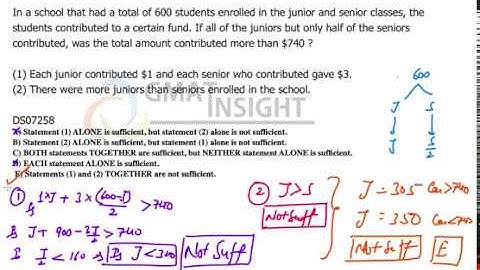 In a school that had a total of 600 students enrolled in the junior and senior classes, the
students contributed to a certain fund. If all of the juniors but only half of the seniors
contributed, was the total amount contributed more than $740 ?
(1) Each junior contributed $1 and each senior who contributed gave $3.
(2) There were more juniors than seniors enrolled in the school.
GMAT
INSIGHT
600
J S
J S/2
DS07258
A) Statement (1) ALONE is sufficient, but statement (2) alone is not sufficient.
B) Statement (2) ALONE is sufficient, but statement (1) alone is not sufficient.
C) BOTH statements TOGETHER are sufficient, but NEITHER statement ALONE is sufficient.
D) EACH statement ALONE is sufficient.
E) Statements (1) and (2) TOGETHER are not sufficient.
① Is 1×J + 3×(600-J)/2 > 740
Is J + 900 - 3J/2 > 740
Is J/2 < 160 Is J < 320 Not Suff
② J > S
Not Suff
J = 305 Can > 740
J = 350 Can < 740
Not Suff E